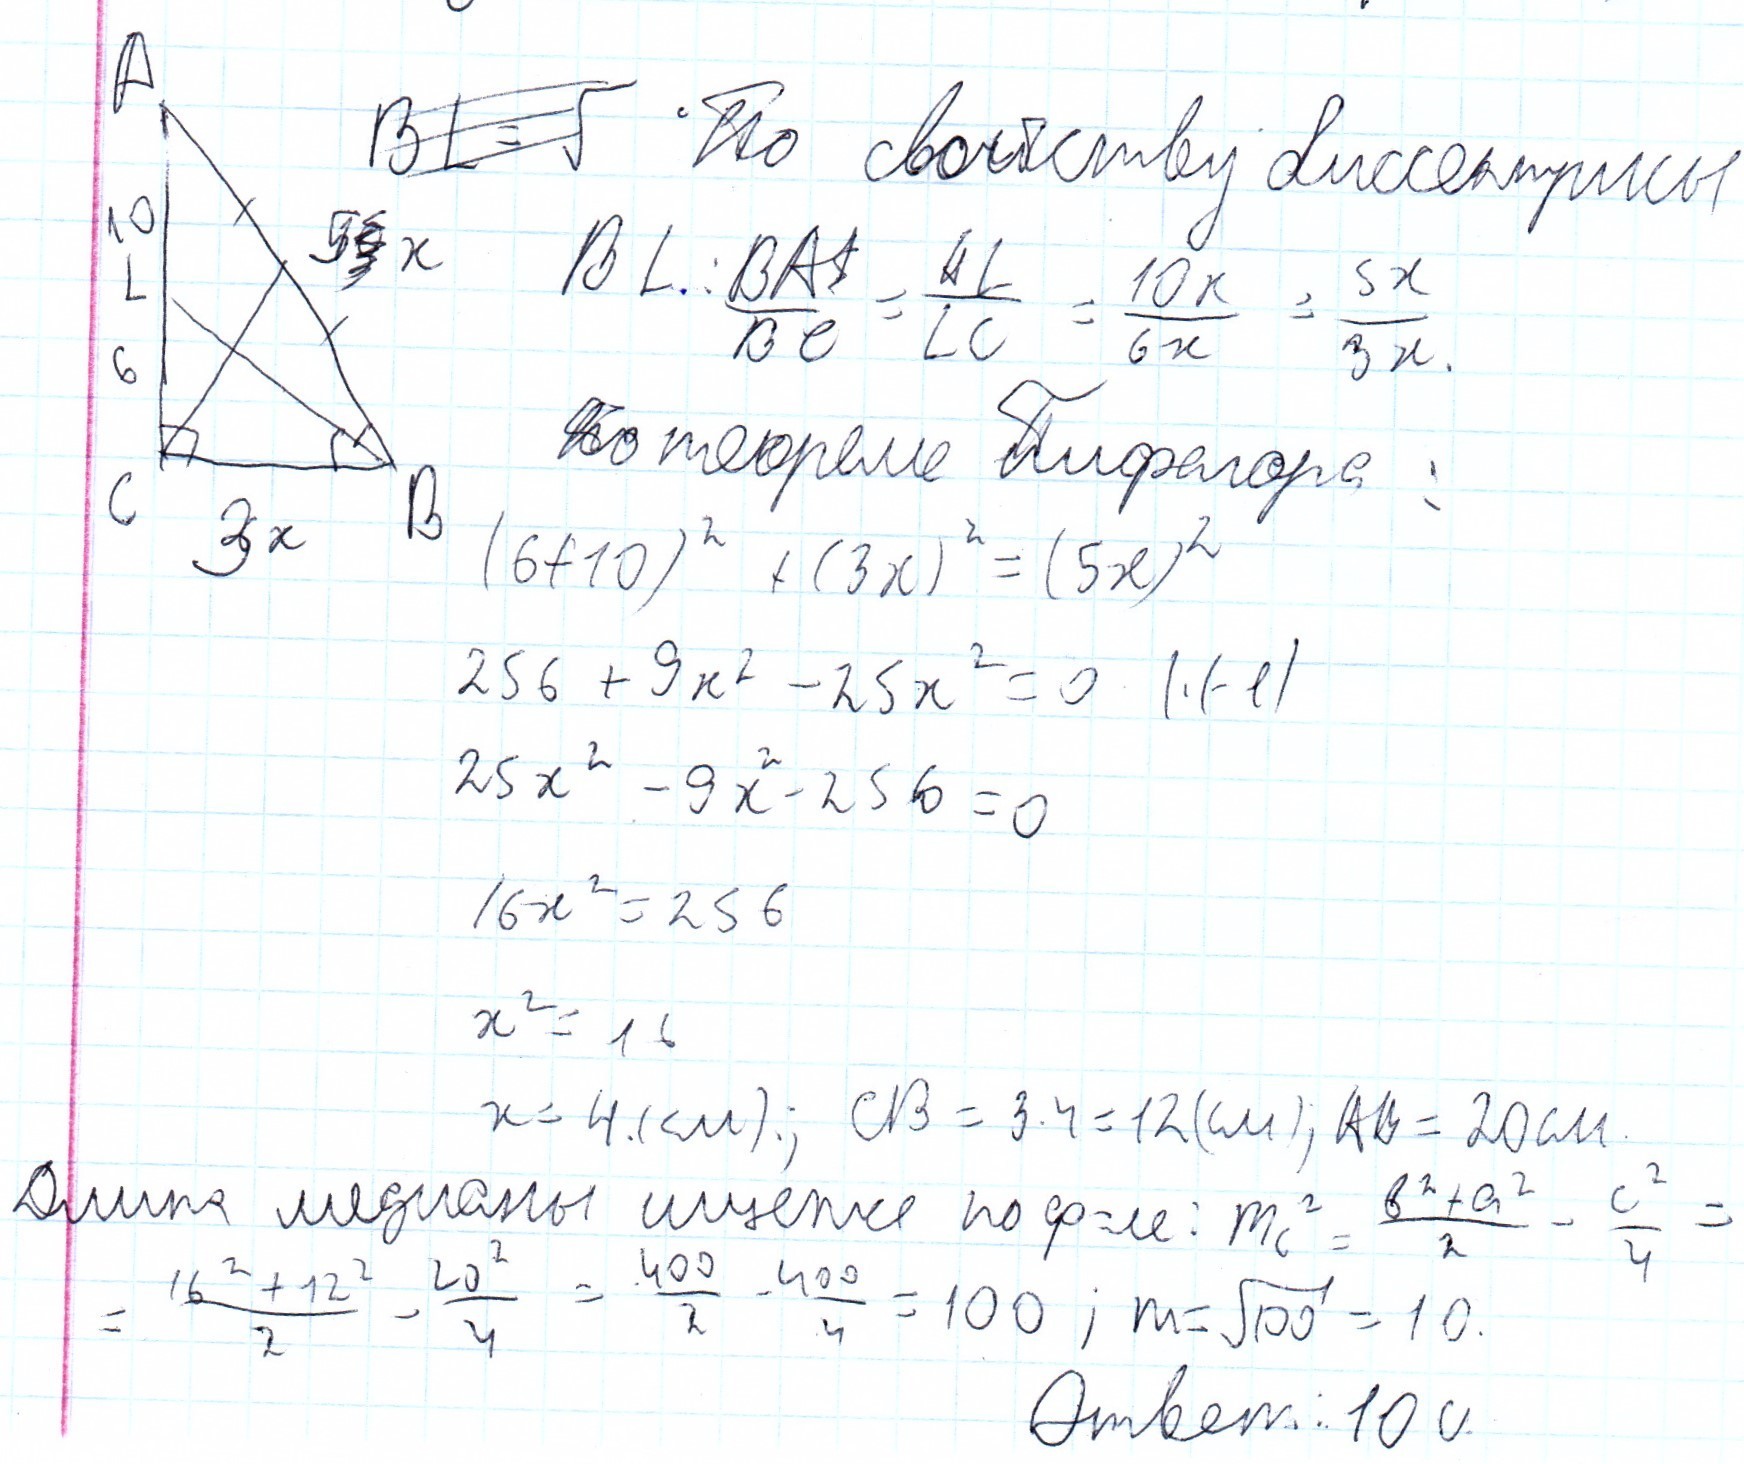 A
10
L
6
C
5x
3x
B
По свойству биссектрисы
BL: BA/BC = AL/LC = 10x/6x = 5x/3x.
По теореме Пифагора:
(6+10)² + (3x)² = (5x)²
256 + 9x² - 25x² = 0 |·(-1)
25x² - 9x² - 256 = 0
16x² = 256
x² = 16
x = 4.(см).; CB = 3·4 = 12(см); AB = 20см.
Длина медианы ищется по ф-ле: mc² = (b² + a²)/2 - c²/4 =
= (16² + 12²)/2 - 20²/4 = 400/2 - 400/4 = 100; m = √100 = 10.
Ответ: 10